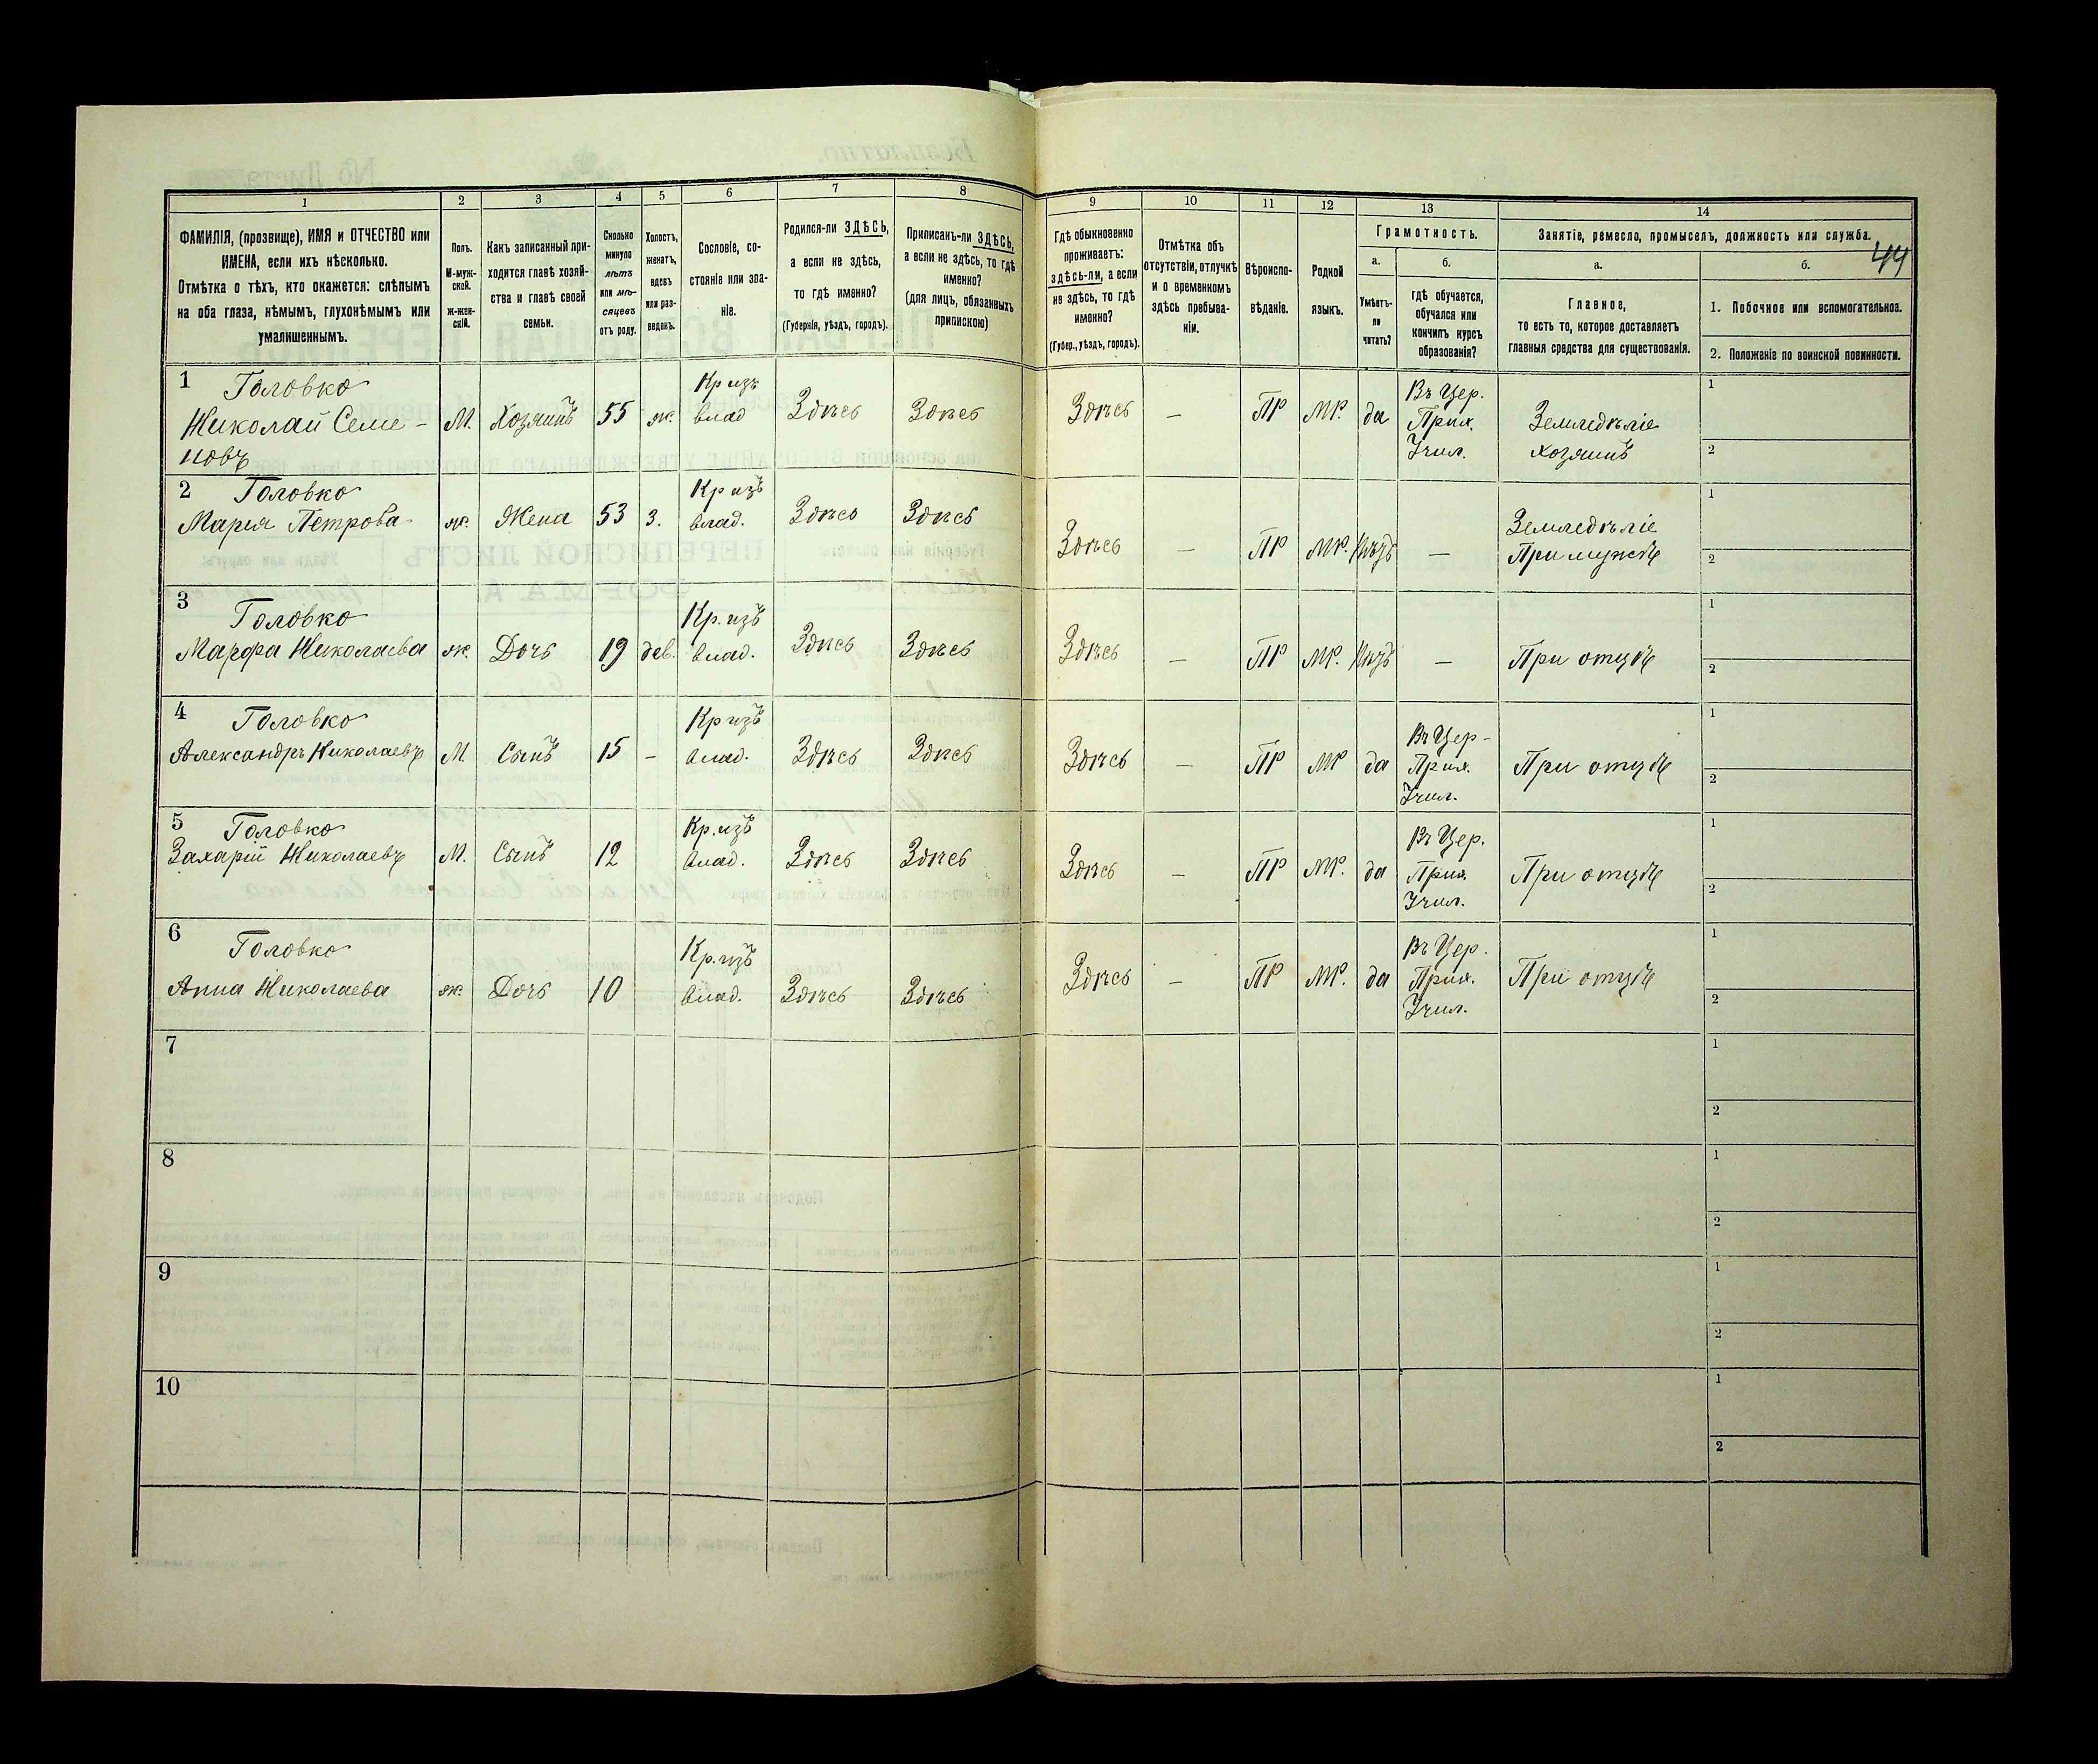 1 2 3 4 5 6 7 8 9 10 11 12 13 14
44
ФАМИЛІЯ, (прозвище), ИМЯ и ОТЧЕСТВО или
ИМЕНА, если ихъ нѣсколько.
Отмѣтка о тѣхъ, кто окажется: слѣпымъ
на оба глаза, нѣмымъ, глухонѣмымъ или
умалишеннымъ.
Полъ.
М-муж-
ской.
ж-жен-
скій.
Какъ записанный при-
ходится главѣ хозяй-
ства и главѣ своей
семьи.
Сколько
минуло
лѣтъ
или мѣ-
сяцевъ
отъ роду.
Холостъ,
женатъ,
вдовъ
или раз-
веденъ.
Сословіе, со-
стояніе или зва-
ніе.
Родился-ли ЗДѢСЬ,
а если не здѣсь,
то гдѣ именно?
(Губернія, уѣздъ, городъ).
Приписанъ-ли ЗДѢСЬ,
а если не здѣсь, то гдѣ
именно?
(для лицъ, обязанныхъ
припискою)
Гдѣ обыкновенно
проживаетъ:
здѣсь-ли, а если
не здѣсь, то гдѣ
именно?
(Губер., уѣздъ, городъ).
Отмѣтка объ
отсутствіи, отлучкѣ
и о временномъ
здѣсь пребыва-
ніи.
Вѣроиспо-
вѣданіе.
Родной
языкъ.
Грамотность.
а.
Умѣетъ-
ли
читать?
б.
гдѣ обучается,
обучался или
кончилъ курсъ
образованія?
Занятіе, ремесло, промыселъ, должность или служба.
а.
Главное,
то есть то, которое доставляетъ
главныя средства для существованія.
б.
1. Побочное или вспомогательное.
2. Положеніе по воинской повинности.
1 Головко
Николай Семе-
новъ
М. Хозяинъ 55 ж.
Кр изъ
влад
Здѣсь Здѣсь Здѣсь — ПР МР. да
Въ Цер.
Прих.
Учил.
Земледѣліе
хозяинъ
1
2
2 Головко
Марія Петрова
ж. Жена 53 з.
Кр изъ
влад.
Здѣсь Здѣсь Здѣсь — ПР МР. Нѣтъ —
Земледѣліе
При мужѣ
1
2
3 Головко
Марфа Николаева
ж. Дочь 19 дев.
Кр. изъ
влад.
Здѣсь Здѣсь Здѣсь — ПР МР. Нѣтъ — При отцѣ
1
2
4 Головко
Александръ Николаевъ
М Сынъ 15 -
Кр изъ
влад.
Здѣсь Здѣсь Здѣсь — ПР МР да
Въ Цер-
Прих.
Учил.
При отцѣ
1
2
5 Головко
Захарій Николаевъ
М. Сынъ 12
Кр. изъ
влад.
Здѣсь Здѣсь Здѣсь — ПР МР. да
Въ Цер.
Прих.
Учил.
При отцѣ
1
2
6 Головко
Анна Николаева
ж. Дочь 10
Кр. изъ
влад.
Здѣсь Здѣсь Здѣсь — ПР МР. да
Въ Цер.
Прих.
Учил.
При отцѣ
1
2
7
1
2
8
1
2
9
1
2
10
1
2